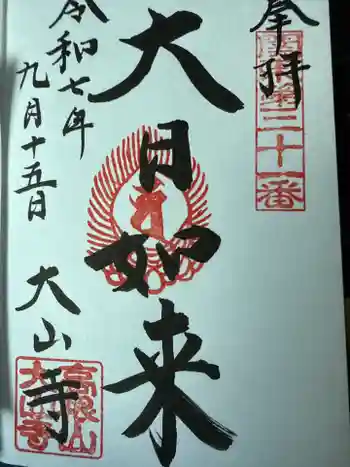 奉拝
第三十一番
大日如来
令和七年
九月十五日
大山寺
高根山
大山寺